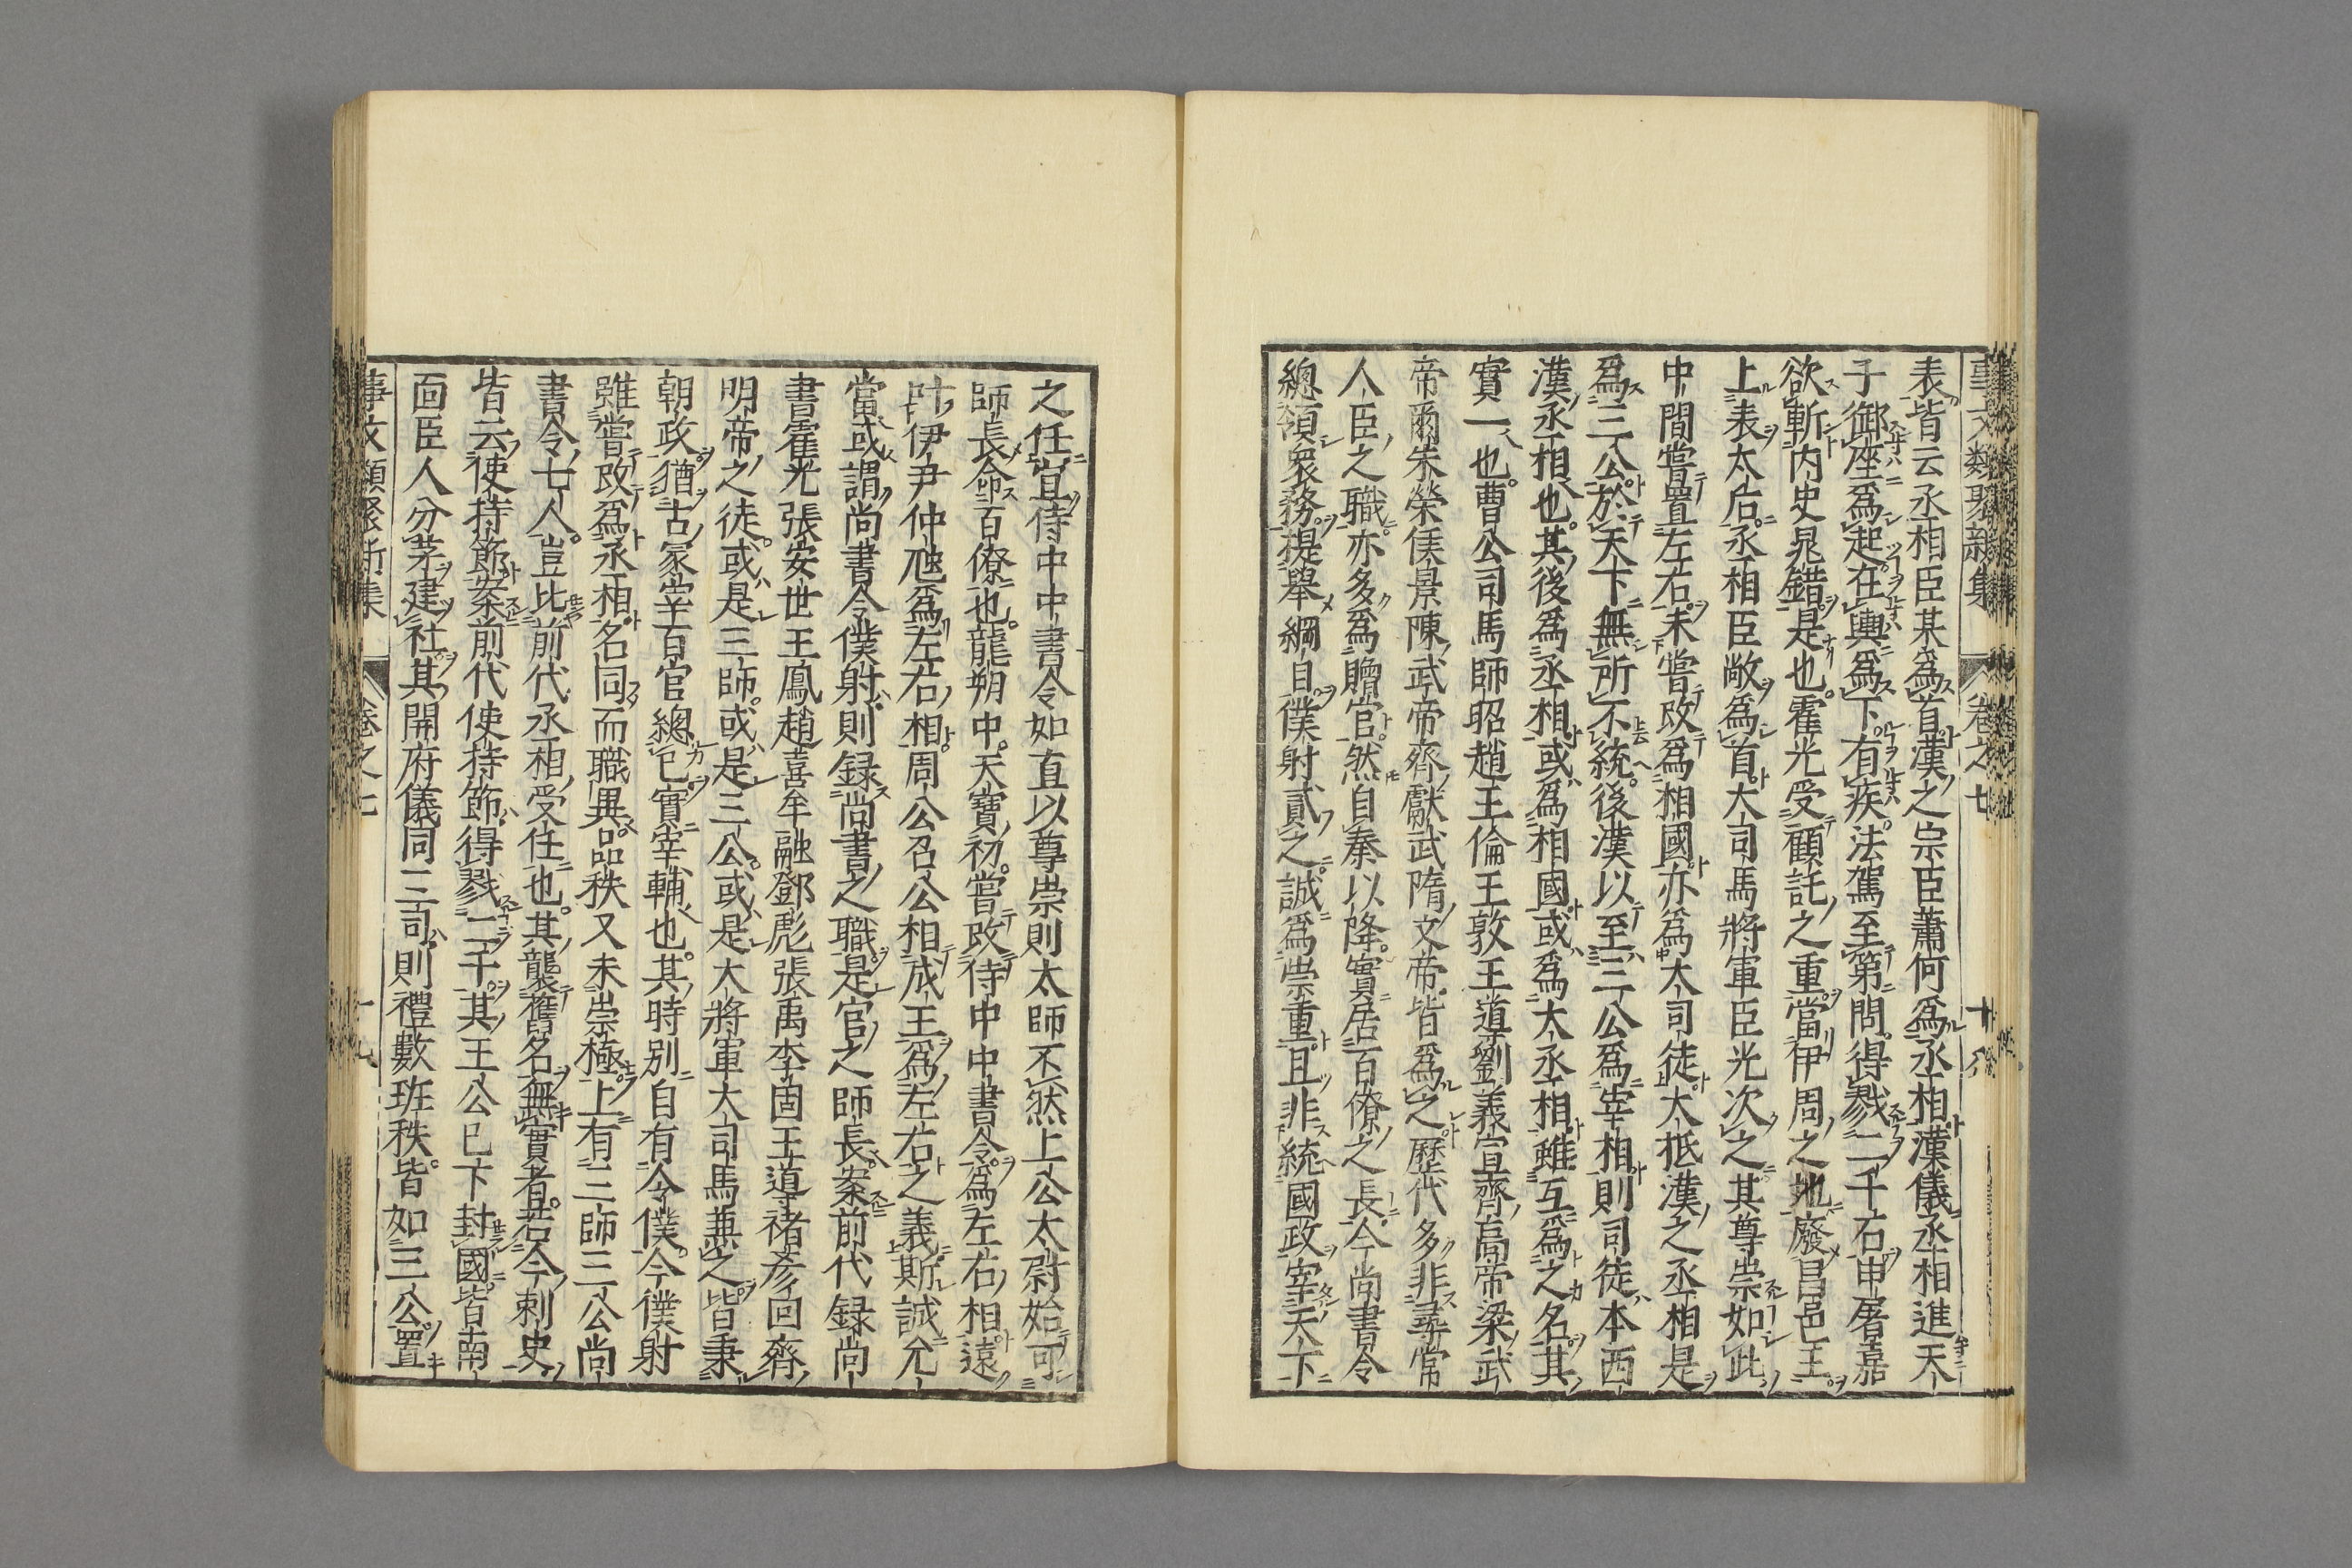 事文類聚新集 卷之七
表皆云丞相臣某爲首漢之宗臣蕭何爲丞相漢儀丞相進天
子御座爲起在輿爲下有疾法駕至第問得戮二千石申屠嘉
欲斬内史晁錯是也霍光受顧託之重當伊周之地廢昌邑王
上表太后丞相臣敞爲首大司馬將軍臣光次之其尊崇如此
中間嘗置左右未嘗改爲相國亦爲大司徒大抵漢之丞相是
爲三公於天下無所不統後漢以至三公爲宰相則司徒本西
漢丞相也其後爲丞相或爲相國或爲大丞相雖互爲之名其
實一也曹公司馬師昭趙王倫王敦王導劉義宣齊高帝梁武
帝爾朱榮侯景陳武帝齊獻武隋文帝皆爲之歷代多非尋常
人臣之職亦多爲贈官然自秦以降實居百僚之長今尚書令
總領衆務提舉綱目僕射貳之誠爲崇重且非統國政宰天下
之任豈侍中中書令如直以尊崇則太師不然上公太尉始可
師長命百僚也龍朔中天寶初嘗改侍中中書令爲左右相遠
叶伊尹仲虺爲左右相周公召公相成王爲左右之義斯誠允
當或謂尚書令僕射則録尚書之職是官之師長案前代録尚
書霍光張安世王鳳趙喜牟融鄧彪張禹李固王導禇彦回齊
明帝之徒或是三師或是三公或是大將軍大司馬兼之皆秉
朝政猶古冢宰百官總已實宰輔也其時別自有令僕今僕射
雖嘗改爲丞相名同而職異品秩又未崇極上有三師三公尚
書令七人豈比前代丞相受任也其襲舊名無實者若今刺史
皆云使持節案前代使持節得戮二千其王公已下封國皆南
面臣人分茅建社其開府儀同三司則禮數班秩皆如三公置
事文類聚新集 卷之七